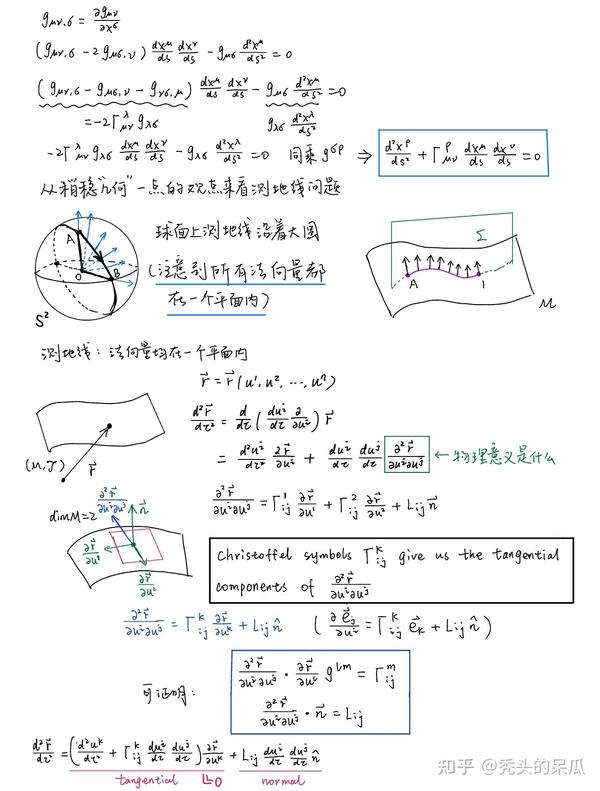 g_{μν,σ} = ∂g_{μν}/∂x^σ
(g_{μν,σ} - 2g_{μσ,ν}) dx^μ/ds dx^ν/ds - g_{μσ} d²x^μ/ds² = 0
(g_{μν,σ} - g_{μσ,ν} - g_{νσ,μ}) dx^μ/ds dx^ν/ds - g_{μσ} d²x^μ/ds² = 0
= -2Γ^λ_{μν} g_{λσ} g_{λσ} d²x^λ/ds²
-2Γ^λ_{μν} g_{λσ} dx^μ/ds dx^ν/ds - g_{λσ} d²x^λ/ds² = 0 同乘 g^{σρ} ⇒ d²x^ρ/ds² + Γ^ρ_{μν} dx^μ/ds dx^ν/ds = 0
从稍稍"几何"一点的观点来看测地线问题
A
O
B
S²
球面上测地线沿着大圆
(注意到所有法向量都
在一个平面内)
Σ
A
1
M
测地线: 法向量均在一个平面内
r⃗ = r⃗(u¹, u², ⋯, uⁿ)
d²r⃗/dτ² = d/dτ (du^i/dτ ∂/∂u^i) r⃗
= d²u^i/dτ² ∂r⃗/∂u^i + du^i/dτ du^j/dτ ∂²r⃗/∂u^i∂u^j ← 物理意义是什么
r⃗
dimM=2
∂²r⃗/∂u^i∂u^j
n⃗
∂r⃗/∂u¹
∂r⃗/∂u²
∂²r⃗/∂u^i∂u^j = Γ¹_{ij} ∂r⃗/∂u¹ + Γ²_{ij} ∂r⃗/∂u² + L_{ij} n⃗
Christoffel symbols Γ^k_{ij} give us the tangential
components of ∂²r⃗/∂u^i∂u^j
∂²r⃗/∂u^i∂u^j = Γ^k_{ij} ∂r⃗/∂u^k + L_{ij} n̂ (∂e⃗_j/∂u^i = Γ^k_{ij} e⃗_k + L_{ij} n̂)
可证明:
∂²r⃗/∂u^i∂u^j · ∂r⃗/∂u^l g^{lm} = Γ^m_{ij}
∂²r⃗/∂u^i∂u^j · n⃗ = L_{ij}
d²r⃗/dτ² = (d²u^k/dτ² + Γ^k_{ij} du^i/dτ du^j/dτ) ∂r⃗/∂u^k + L_{ij} du^i/dτ du^j/dτ n̂
tangential ↳0 normal
知乎 @秃头的呆瓜